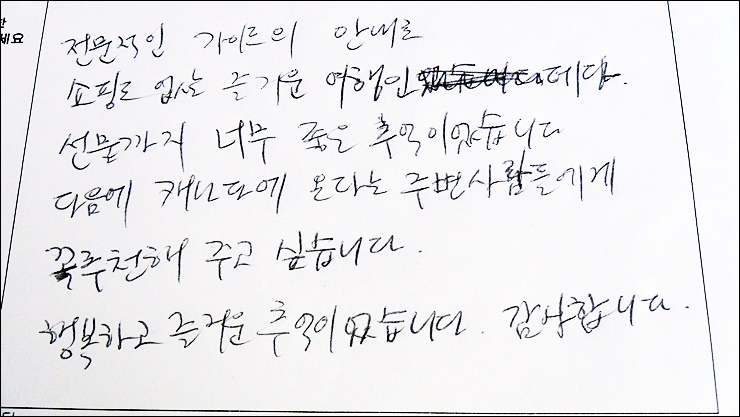 세요
전문적인 가이드의 안내로
쇼핑도 없는 즐거운 여행인데다.
선물까지 너무 좋은 추억이었습니다
다음에 캐나다에 온다는 주변사람들에게
꼭추천해 주고 싶습니다.
행복하고 즐거운 추억이었습니다. 감사합니다.